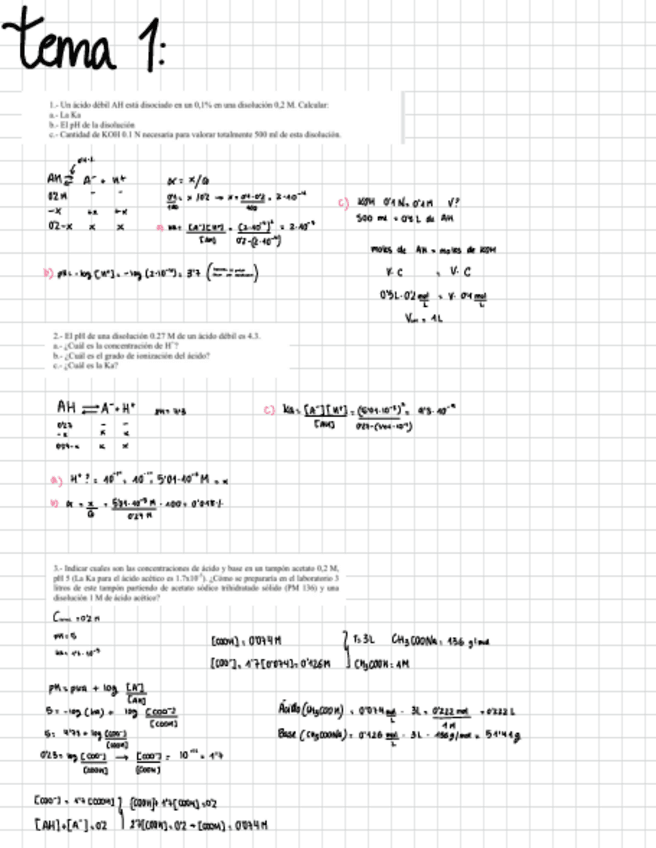 tema 1:
1.- Un ácido débil AH está disociado en un 0,1% en una disolución 0,2 M. Calcular:
a.- La Ka
b.- El pH de la disolución
c.- Cantidad de KOH 0.1 N necesaria para valorar totalmente 500 ml de esta disolución.
AH ⇌ A⁻ + H⁺
0'2 M - -
-x +x +x
0'2-x x x
α = x/C
a) Ka = [A⁻][H⁺] / [AH] = (2·10⁻⁴)² / 0'2-(2·10⁻⁴) = 2·10⁻⁷
b) pH = -log [H⁺] = -log (2·10⁻⁴) = 3'7
c) KOH 0'1 N = 0'1 M V?
500 ml = 0'5 L de AH
moles de AH = moles de KOH
V·C = V·C
0'5L·0'2 mol/L = V·0'1 mol/L
= 1L
2.- El pH de una disolución 0.27 M de un ácido débil es 4.3.
a.- ¿Cuál es la concentración de H⁺?
b.- ¿Cuál es el grado de ionización del ácido?
c.- ¿Cuál es la Ka?
AH ⇌ A⁻ + H⁺ pH = 4'3
0'27 - -
-x x x
0'27-x x x
c) Ka = [A⁻][H⁺] / [AH] = (5'01·10⁻⁵)²
a) H⁺? = = 5'01·10⁻⁵ M = x
b) α = x/C = 5'01·10⁻⁵ M / 0'27 M · 100 = 0'018%
3.- Indicar cuales son las concentraciones de ácido y base en un tampón acetato 0,2 M,
pH 5 (La Ka para el ácido acético es 1.7x10⁻⁵). ¿Cómo se prepararía en el laboratorio 3
litros de este tampón partiendo de acetato sódico trihidratado sólido (PM 136) y una
disolución 1 M de ácido acético?
= 0'2 M
pH = 5
Ka = 1'7·10⁻⁵
[COOH] = 0'074 M
[COO⁻] = 1'7[0'074] = 0'126 M
3L CH₃COONa = 136 g/mol
CH₃COOH = 1M
pH = pKa + log [A⁻]/[AH]
5 = -log (Ka) + log [COO⁻]/[COOH]
5 = 4'77 + log [COO⁻]/[COOH]
0'23 = log [COO⁻]/[COOH] → [COO⁻]/[COOH] = = 1'7
Ácido (CH₃COOH) = 0'074 mol/L · 3L = 0'222 mol / 1M = 0'222 L
Base (CH₃COONa) = 0'126 mol/L · 3L · 136 g/mol = 51'41 g
[COO⁻] = 1'7 [COOH] [COOH] + 1'7[COOH] = 0'2
[AH] + [A⁻] = 0'2 2'7[COOH] = 0'2 → [COOH] = 0'074 M